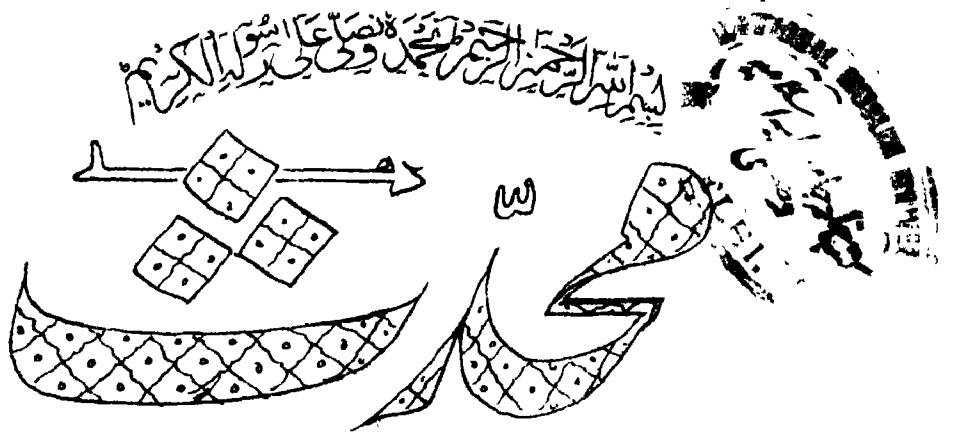 بسم الله الرحمن الرحيم نحمده ونصلي على رسوله الكريم
محدث